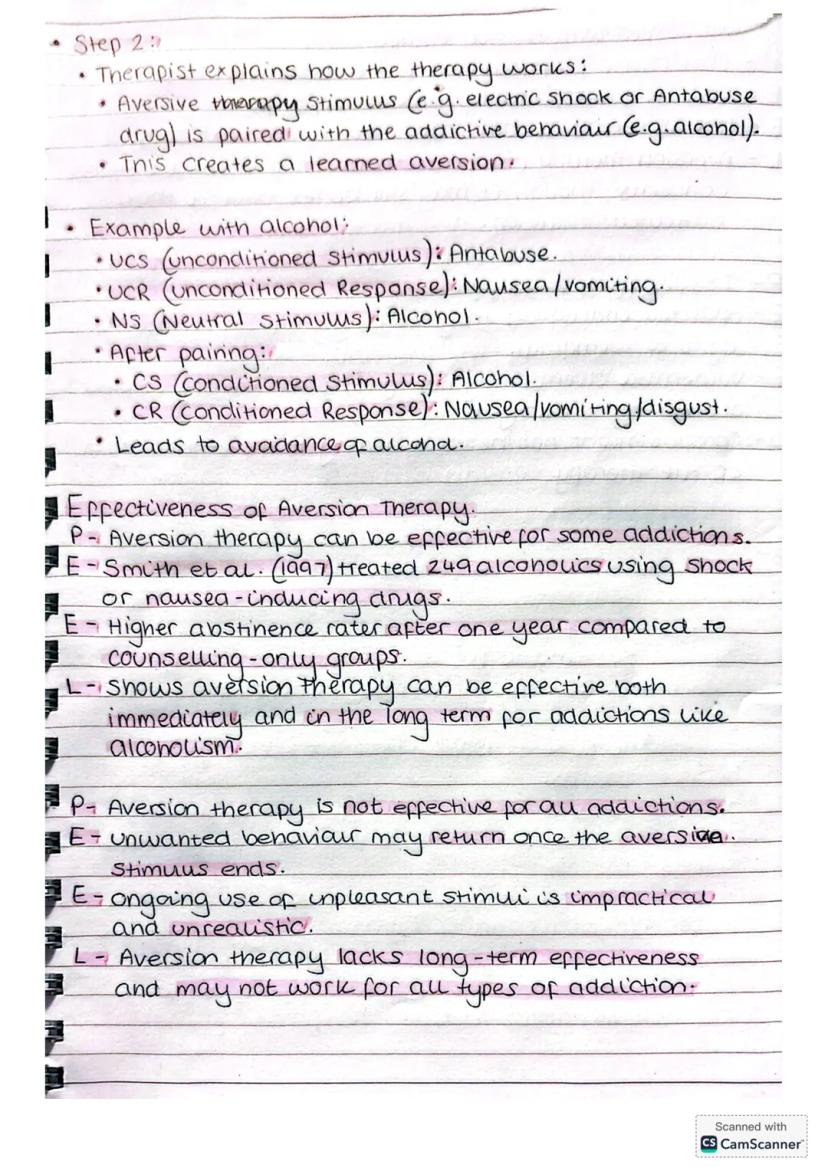 • Step 2:
• Therapist explains how the therapy works:
• Aversive therapy Stimulus (e.g. electric shock or Antabuse
drug) is paired with the addictive behaviour (e.g. alcohol).
• This creates a learned aversion.
• Example with alcohol:
• UCS (unconditioned Stimulus): Antabuse.
• UCR (unconditioned Response): Nausea/vomiting.
• NS (Neutral Stimulus): Alcohol.
• After pairing:
• CS (conditioned Stimulus): Alcohol.
• CR (conditioned Response): Nausea/vomiting/disgust.
• Leads to avoidance of alcohol.
Effectiveness of Aversion Therapy.
P- Aversion therapy can be effective for some addictions.
E- Smith et al. (1997) treated 249 alcoholics using shock
or nausea-inducing drugs.
E- Higher abstinence rates after one year compared to
counselling-only groups.
L- Shows aversion therapy can be effective both
immediately and in the long term for addictions like
alcoholism.
P- Aversion therapy is not effective for all addictions.
E- unwanted behaviour may return once the aversive
stimulus ends.
E- ongoing use of unpleasant stimuli is impractical
and unrealistic.
L- Aversion therapy lacks long-term effectiveness
and may not work for all types of addiction.
Scanned with
CS CamScanner